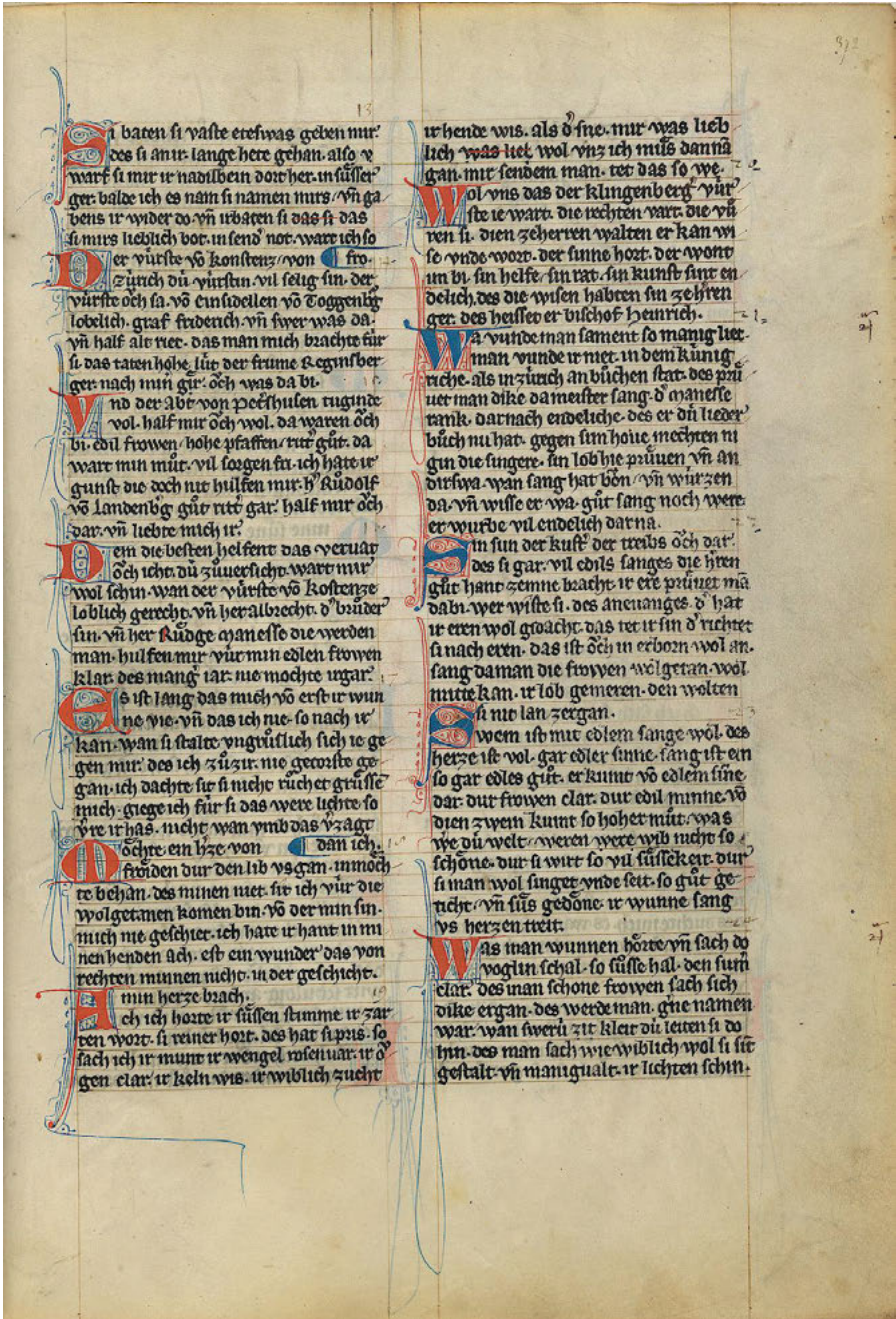 372
13
Si baten si vaste eteswas geben mir.
des si an ir. lange hete gehan. also v
warf si mir ir nadilbein dort her. in süsser
ger. balde ich es nam si namen mirs. vn̄ ga
bens ir wider do. vn̄ irbaten si das si das
si mirs lieblich bot. in send' not. wart ich so
Der vürste vō Konstenz. von ¶ fro.
Zürich dü vürstin. vil selig sin. der
vürste och sa. vō einsidellen vō Toggenb'g
lobelich. graf friderich. vn̄ swer was da.
vn̄ half alt riet. das man mich brachte für
si. das taten hohe lüt der frume Reginsber
ger. nach min gir. och was da bi.
Vnd der abt von Pet'shusen tuginde
vol. half mir och wol. da waren och
bi. edil frowen. hohe pfaffen. ritt' gůt. da
wart min můt. vil sorgen fri. ich hate ir
gunst die doch nit hülfen mir. h' Růdolf
vō Landenb'g gůt ritt' gar. half mir och
dar. vn̄ liebte mich ir.
Dem die besten helfent das vervat
och icht. dü zůversicht. wart mir
wol schin. wan der vürste vō Kostenze
loblich gerecht. vn̄ her albrecht. d' brůder
sin. vn̄ her Růdge Manesse die werden
man. hulfen mir vür min edlen frowen
klar. des mang iar. nie mochte irgar.
Es ist lang das mich vō erst ir wun
ne vie. vn̄ das ich nie. so nach ir
kan. wan si stalte vngrůslich sich ie ge
gen mir. des ich zů z ir. nie getorste ge
gan. ich dachte sit si nicht růchet grůssē
mich. giege ich für si das were lichte so
v're ir has. nicht wan vmb das v'zagt
Mochte ein h'ze von ¶ dan ich.
froiden dur den lib vs gan. in moch
te behan. des minen niet. sit ich vür die
wolgetanen komen bin. vō der min sin.
mich nie geschiet. ich hate ir hant in mi
nen henden ach. est ein wunder das von
rechten minnen nicht. in der geschicht.
min herze brach.
Ach ich horte ir süssen stimme ir zar
ten wort. si reiner hort. des hat si pris. so
sach ich ir munt ir wengel rosenvar. ir o
gen clar. ir keln wis. ir wiblich zucht
ir hende wis. als d' sne. mir was lieb
lich was liet wol vnz ich můs dannā
gan. mir sendem man. tet das so we.
Wol vns das der Klingenberg vür
ste ie wart. die rechten vart. die vů
ren si. dien zeherren walten er kan wi
se vnde wort. der sinne hort. der wont
im bi. sin helfe. sin rat. sin kunst sint en
delich. des die wisen habten sin ze hren
ger. des heisset er bischof Heinrich.
Wa vunde man sament so manig liet.
man vunde ir niet. in dem künig
riche. als in zürich an bůchen stat. des prů
uet man dike da meister sang. d' Manesse
rank. dar nach endeliche. des er dü lieder
bůch nu hat. gegen sim houe mechten ni
gin die singere. sin lob hie průuen vn̄ an
dirswa. wan sang hat bōn. vn̄ würzen
da. vn̄ wisse er wa. gůt sang noch were.
er wurbe vil endelich dar na.
Sin sun der kust' der treibs och dar.
des si gar. vil edils sanges die h'ren
gůt. hant zemne bracht. ir ere průuet mā
dabi. wer wiste si. des aneuanges. d' hat
ir eren wol gdacht. das tet ir sin d' richtet
si nach eren. das ist och in erborn wol an.
sang da man die frowen wolgetan. wol
mitte kan. ir lob gemeren. den wolten
si nit lan zergan.
Swem ist mit edlem sange wol. des
herze ist vol. gar edler sinne. sang ist ein
so gar edles gůt. er kumt vō edlem sine
dar. dur frowen clar. dur edil minne. vō
dien zwein kumt so hoher můt. was
we dü welt. weren were wib nicht so
schöne. dur si wirt so vil süssekeit. dur
si man wol singet vnde seit. so gůt ge
ticht. vn̄ süs gedöne. ir wunne sang
vs herzen treit.
Was man wunnen hörte vn̄ sach do
voglin schal. so süsse hal. den sum'
clar. des man schone frowen sach sich
dike ergan. des werde man. g'ne namen
war. wan swerü zit kleit dü leiten si do
hin. des man sach wie wiblich wol si sit
gestalt. vn̄ manigualt. ir lichten schin.